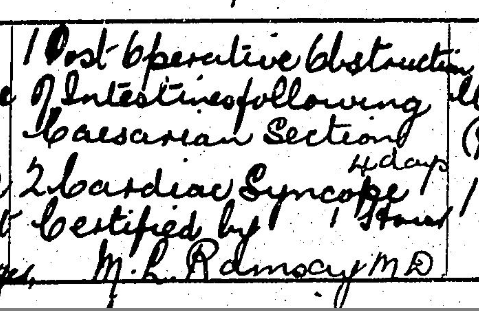 1 Post Operative Obstruction
of Intestines following
Caesarian Section
4 days
2 Cardiac Syncope
Certified by 1 Hour
M. L. Ramsay MD